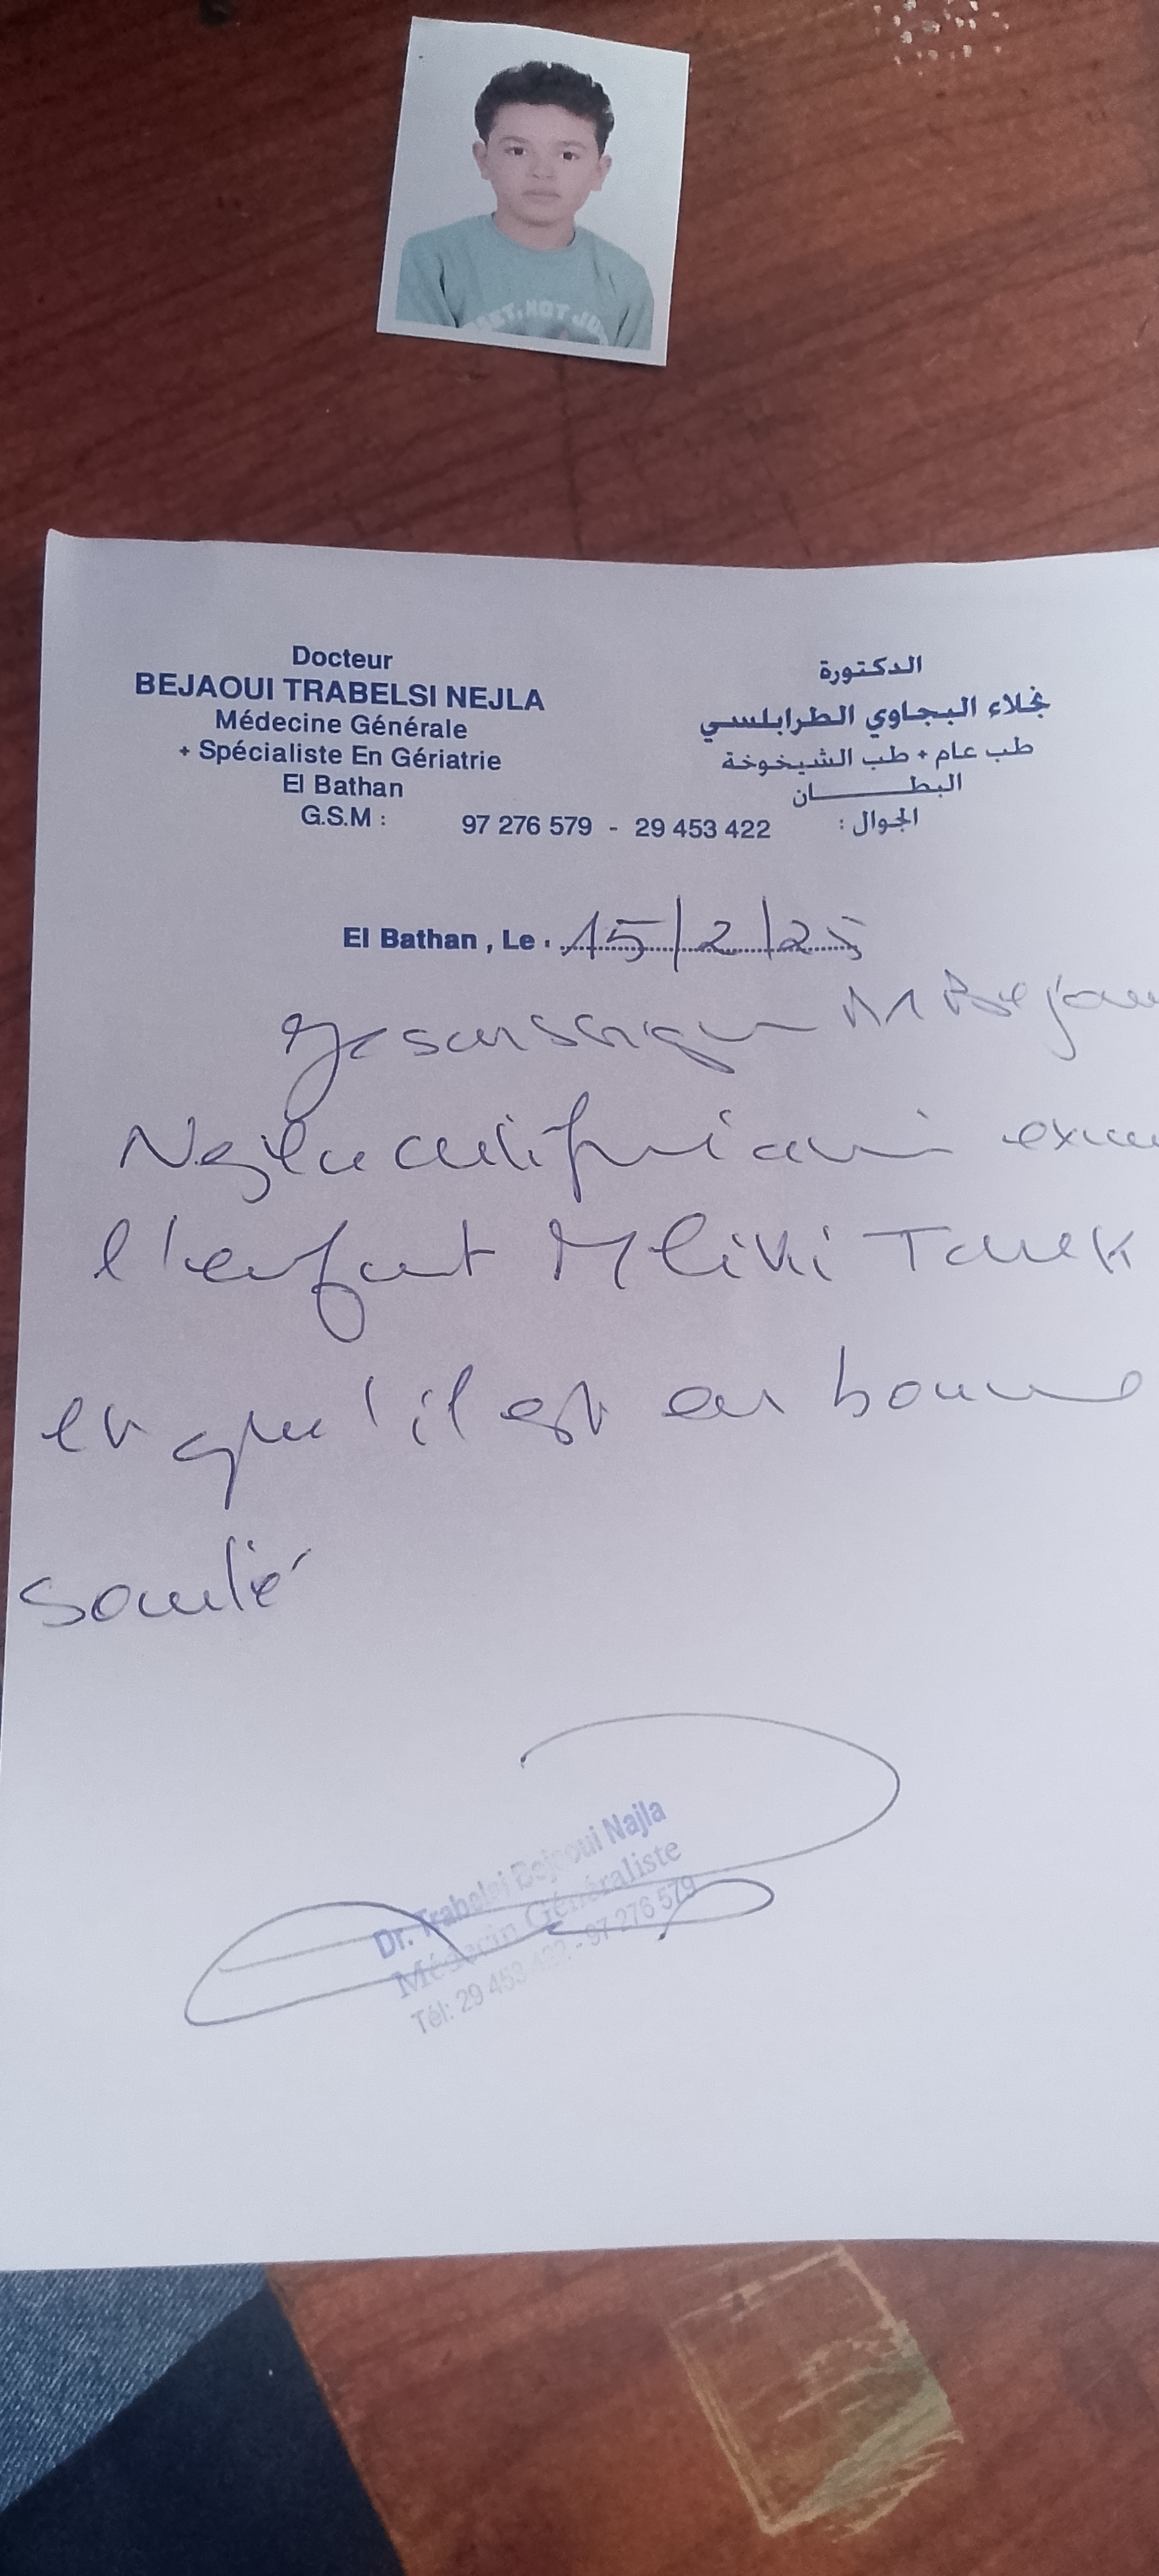 EST, NOT JU
Docteur
BEJAOUI TRABELSI NEJLA
Médecine Générale
+ Spécialiste En Gériatrie
El Bathan
G.S.M :
الدكتورة
نجلاء البجاوي الطرابلسي
طب عام + طب الشيخوخة
البطـــــان
الجوال :
97 276 579 - 29 453 422
El Bathan , Le : 15/2/25
Je soussigné Bejaou
Nejla certifie avoir exam
l'enfant Mliki Tarek
et qu'il est en bonne
santé
Dr. Trabelsi Bejaoui Najla
Médecin Généraliste
Tél: 29 453 422 - 97 276 579